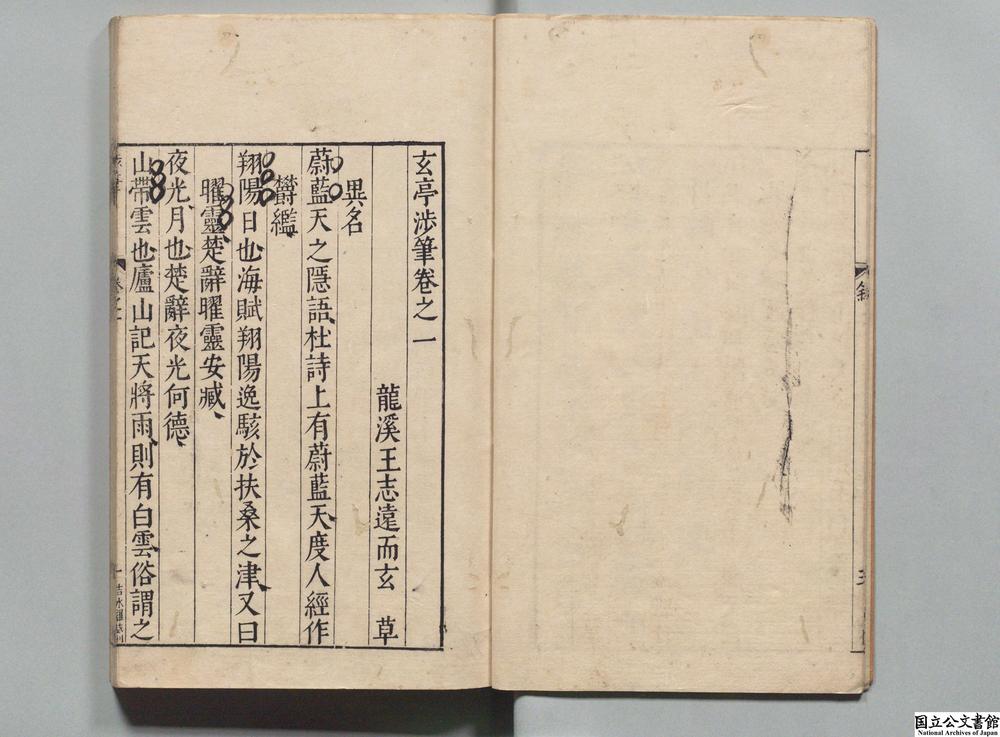 玄亭涉筆卷之一
龍溪王志遠而玄　草
異名
蔚藍天之隱語、杜詩上有蔚藍天、度人經作
欎繿、
翔陽日也、海賦翔陽逸駭於扶桑之津、又曰
曜靈、楚辭曜靈安臧、
夜光、月也、楚辭夜光何德、
山帶雲也、廬山記天將雨、則有白雲、俗謂之
一
敘
国立公文書館
National Archives of Japan